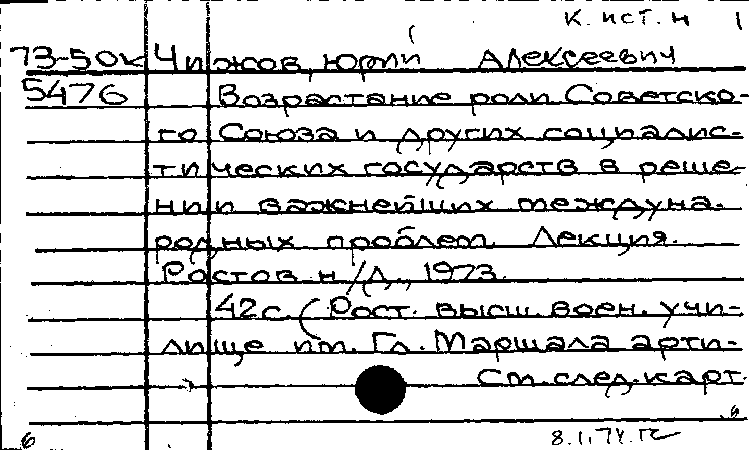 К. ист. н 1
73-50к Чижов, Юрий Алексеевич
5476 Возрастание роли Советско-
го Союза и других социалис-
тических государств в реше-
нии важнейших междуна-
родных проблем. Лекция.
Ростов н/Д., 1973.
42с. (Рост. высш. воен. учи-
лище им. Гл. Маршала арти-
См. след. карт.
6 8.1.74.